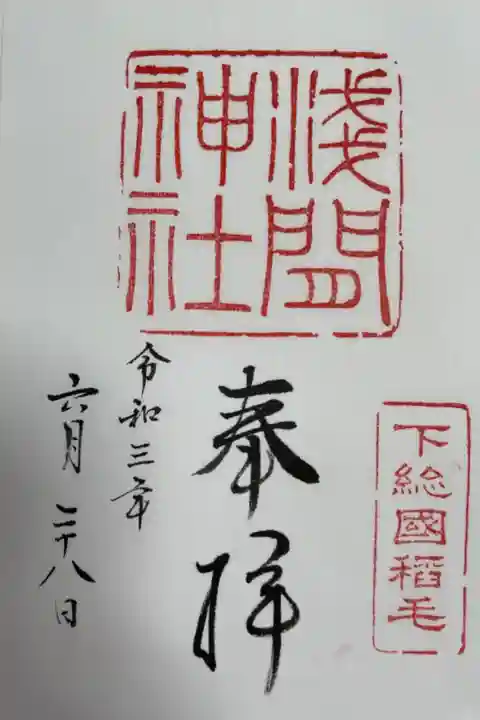 淺間
神社
下総國稻毛
奉拝
令和三年
六月二十八日